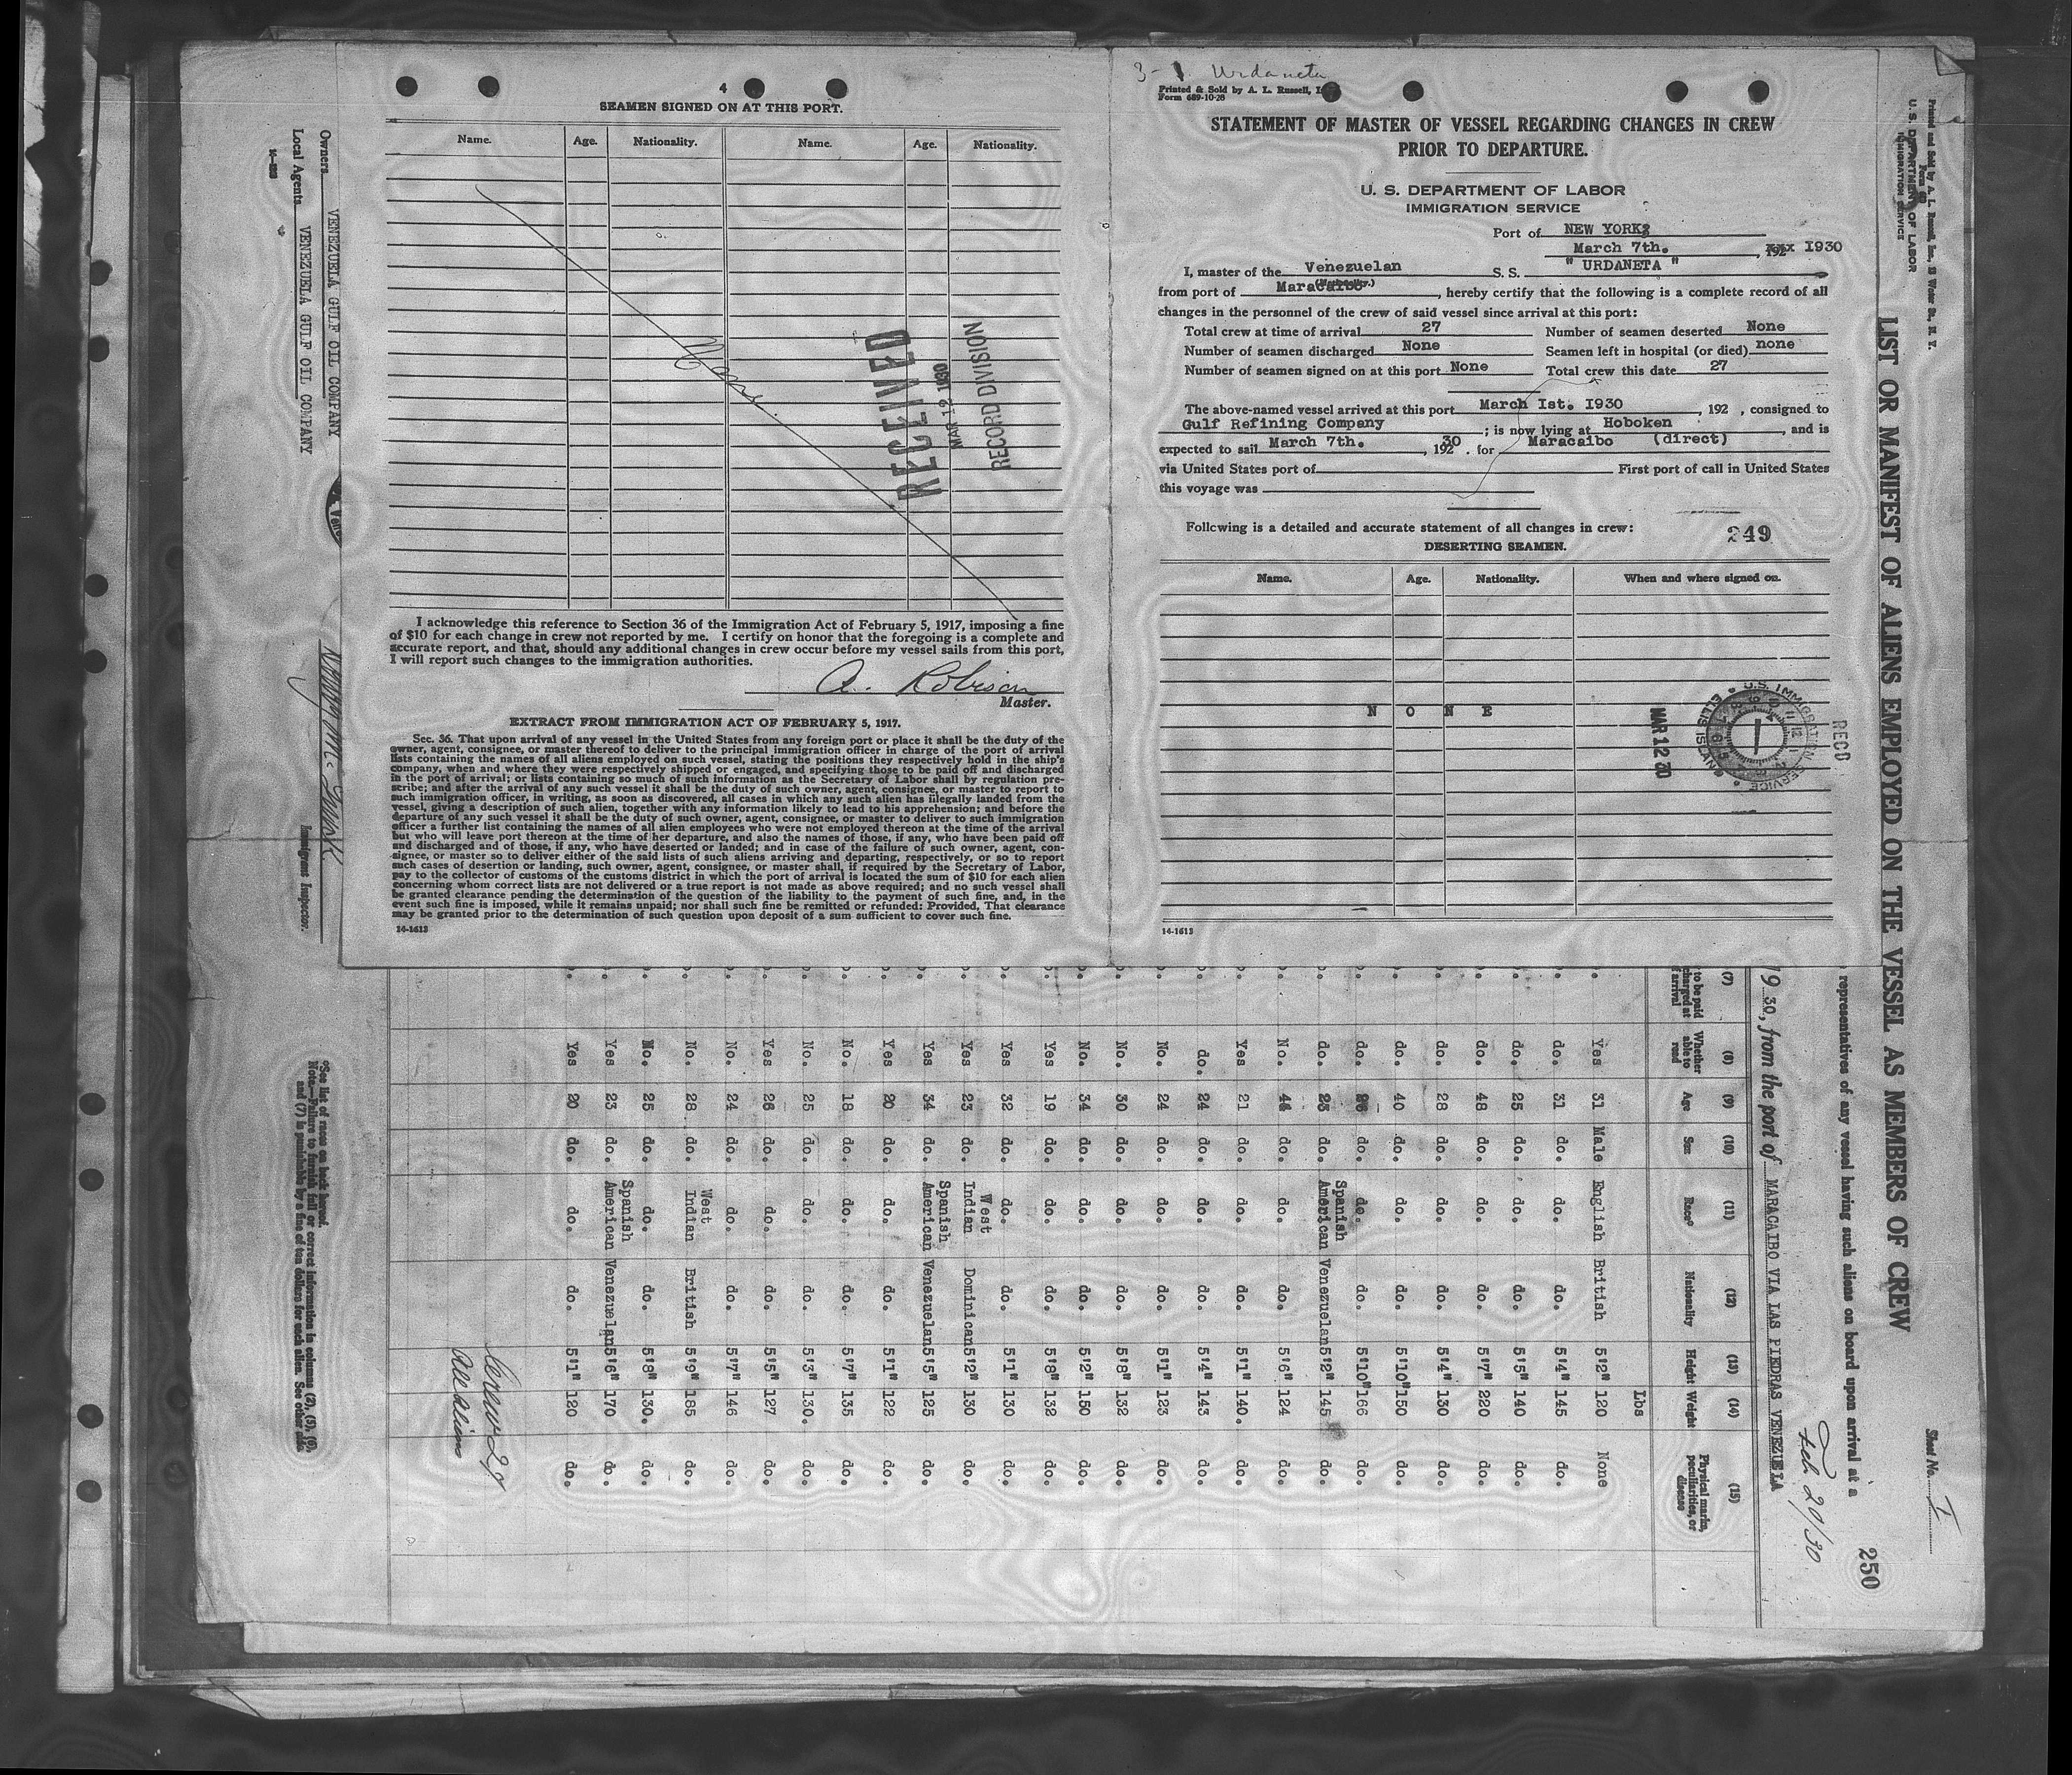 4
SEAMEN SIGNED ON AT THIS PORT.
Name. Age. Nationality. Name. Age. Nationality.
None.
RECEIVED
MAR 12 1930
RECORD DIVISION
I acknowledge this reference to Section 36 of the Immigration Act of February 5, 1917, imposing a fine
of $10 for each change in crew not reported by me. I certify on honor that the foregoing is a complete and
accurate report, and that, should any additional changes in crew occur before my vessel sails from this port,
I will report such changes to the immigration authorities.
A. Robison
Master.
EXTRACT FROM IMMIGRATION ACT OF FEBRUARY 5, 1917.
Sec. 36. That upon arrival of any vessel in the United States from any foreign port or place it shall be the duty of the
owner, agent, consignee, or master thereof to deliver to the principal immigration officer in charge of the port of arrival
lists containing the names of all aliens employed on such vessel, stating the positions they respectively hold in the ship's
company, when and where they were respectively shipped or engaged, and specifying those to be paid off and discharged
in the port of arrival; or lists containing so much of such information as the Secretary of Labor shall by regulation pre-
scribe; and after the arrival of any such vessel it shall be the duty of such owner, agent, consignee, or master to report to
such immigration officer, in writing, as soon as discovered, all cases in which any such alien has illegally landed from the
vessel, giving a description of such alien, together with any information likely to lead to his apprehension; and before the
departure of any such vessel it shall be the duty of such owner, agent, consignee, or master to deliver to such immigration
officer a further list containing the names of all alien employees who were not employed thereon at the time of the arrival
but who will leave port thereon at the time of her departure, and also the names of those, if any, who have been paid off
and discharged and of those, if any, who have deserted or landed; and in case of the failure of such owner, agent, con-
signee, or master so to deliver either of the said lists of such aliens arriving and departing, respectively, or so to report
such cases of desertion or landing, such owner, agent, consignee, or master shall, if required by the Secretary of Labor,
pay to the collector of customs of the customs district in which the port of arrival is located the sum of $10 for each alien
concerning whom correct lists are not delivered or a true report is not made as above required; and no such vessel shall
be granted clearance pending the determination of the question of the liability to the payment of such fine, and, in the
event such fine is imposed, while it remains unpaid; nor shall such fine be remitted or refunded: Provided, That clearance
may be granted prior to the determination of such question upon deposit of a sum sufficient to cover such fine.
14-1613
3- Urdaneta
Printed & Sold by A. L. Russell, I
Form 689-10-28
STATEMENT OF MASTER OF VESSEL REGARDING CHANGES IN CREW
PRIOR TO DEPARTURE.
U. S. DEPARTMENT OF LABOR
IMMIGRATION SERVICE
Port of NEW YORK
March 7th. , 192 xxx 1930
I, master of the Venezuelan S. S. " URDANETA "
(Nationality.)
from port of Maracaibo , hereby certify that the following is a complete record of all
changes in the personnel of the crew of said vessel since arrival at this port:
Total crew at time of arrival 27 Number of seamen deserted None
Number of seamen discharged None Seamen left in hospital (or died) none
Number of seamen signed on at this port None Total crew this date 27
The above-named vessel arrived at this port March 1st. 1930 , 192 , consigned to
Gulf Refining Company ; is now lying at Hoboken , and is
expected to sail March 7th. , 192 30 . for Maracaibo (direct)
via United States port of First port of call in United States
this voyage was
Following is a detailed and accurate statement of all changes in crew:
249
DESERTING SEAMEN.
Name. Age. Nationality. When and where signed on.
N O N E
U.S. IMMIGRATION SERVICE ELLIS ISLAND
RECD
MAR 12 30
14-1613
Printed and Sold by A. L. Russell, Inc., 13 Water St., N. Y.
U. S. DEPARTMENT OF LABOR
IMMIGRATION SERVICE
Sheet No. I
LIST OR MANIFEST OF ALIENS EMPLOYED ON THE VESSEL AS MEMBERS OF CREW
250
representatives of any vessel having such aliens on board upon arrival at a
Feb 20/30
19 30, from the port of MARACAIBO VIA LAS PIEDRAS VENEZUELA
(7) (8) (9) (10) (11) (12) (13) (14) (15)
to be paid charged at f arrival Whether able to read Age Sex Race* Nationality Height Weight Physical marks, peculiarities, or disease
Lbs
Yes 31 Male English British 5'2" 120 None
do. 31 do. do. do. 5'4" 145 do.
do. 25 do. do. do. 5'5" 140 do.
do. 48 do. do. do. 5'7" 220 do.
do. 28 do. do. do. 5'4" 130 do.
do. 40 do. do. do. 5'10" 150 do.
do. 26 do. do. do. 5'10" 166 do.
do. 23 do. Spanish American Venezuelan 5'2" 145 do.
No. 44 do. do. do. 5'6" 124 do.
Yes 21 do. do. do. 5'1" 140. do.
do. 24 do. do. do. 5'4" 143 do.
No. 24 do. do. do. 5'1" 123 do.
No. 30 do. do. do. 5'8" 132 do.
No. 34 do. do. do. 5'2" 150 do.
Yes 19 do. do. do. 5'8" 132 do.
Yes 32 do. do. do. 5'1" 130 do.
Yes 23 do. West Indian Dominican 5'2" 130 do.
Yes 34 do. Spanish American Venezuelan 5'5" 125 do.
Yes 20 do. do. do. 5'1" 122 do.
No. 18 do. do. do. 5'7" 135 do.
No. 25 do. do. do. 5'3" 130. do.
Yes 26 do. do. do. 5'5" 127 do.
No. 24 do. do. do. 5'7" 146 do.
No. 28 do. West Indian British 5'9" 185 do.
No. 25 do. do. do. 5'8" 130. do.
Yes 23 do. Spanish American Venezuelan 5'6" 170 do.
Yes 20 do. do. do. 5'1" 120 do.
Crew 27
All Aliens
Owners VENEZUELA GULF OIL COMPANY
Local Agents VENEZUELA GULF OIL COMPANY
Immigrant Inspector.
*See list of races on back hereof.
Note.—Failure to furnish full or correct information in columns (2), (5), (6),
and (7) is punishable by a fine of ten dollars for each alien. See other side